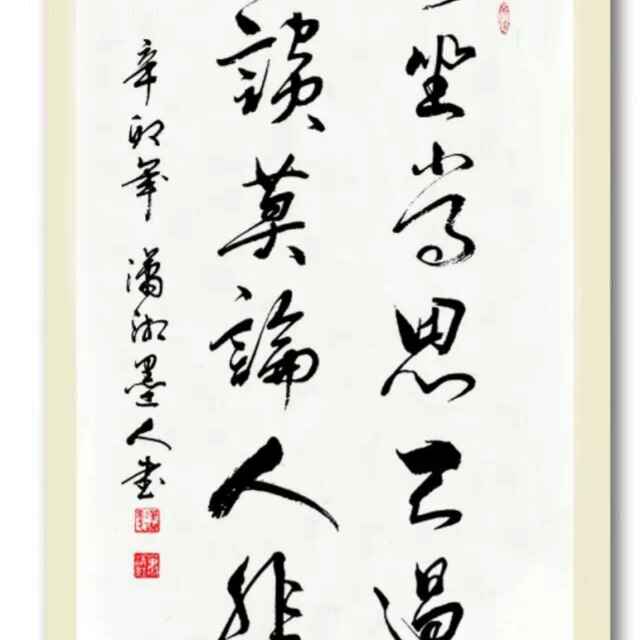 坐常思己過
談莫論人非
辛卯年 瀟湘墨人書